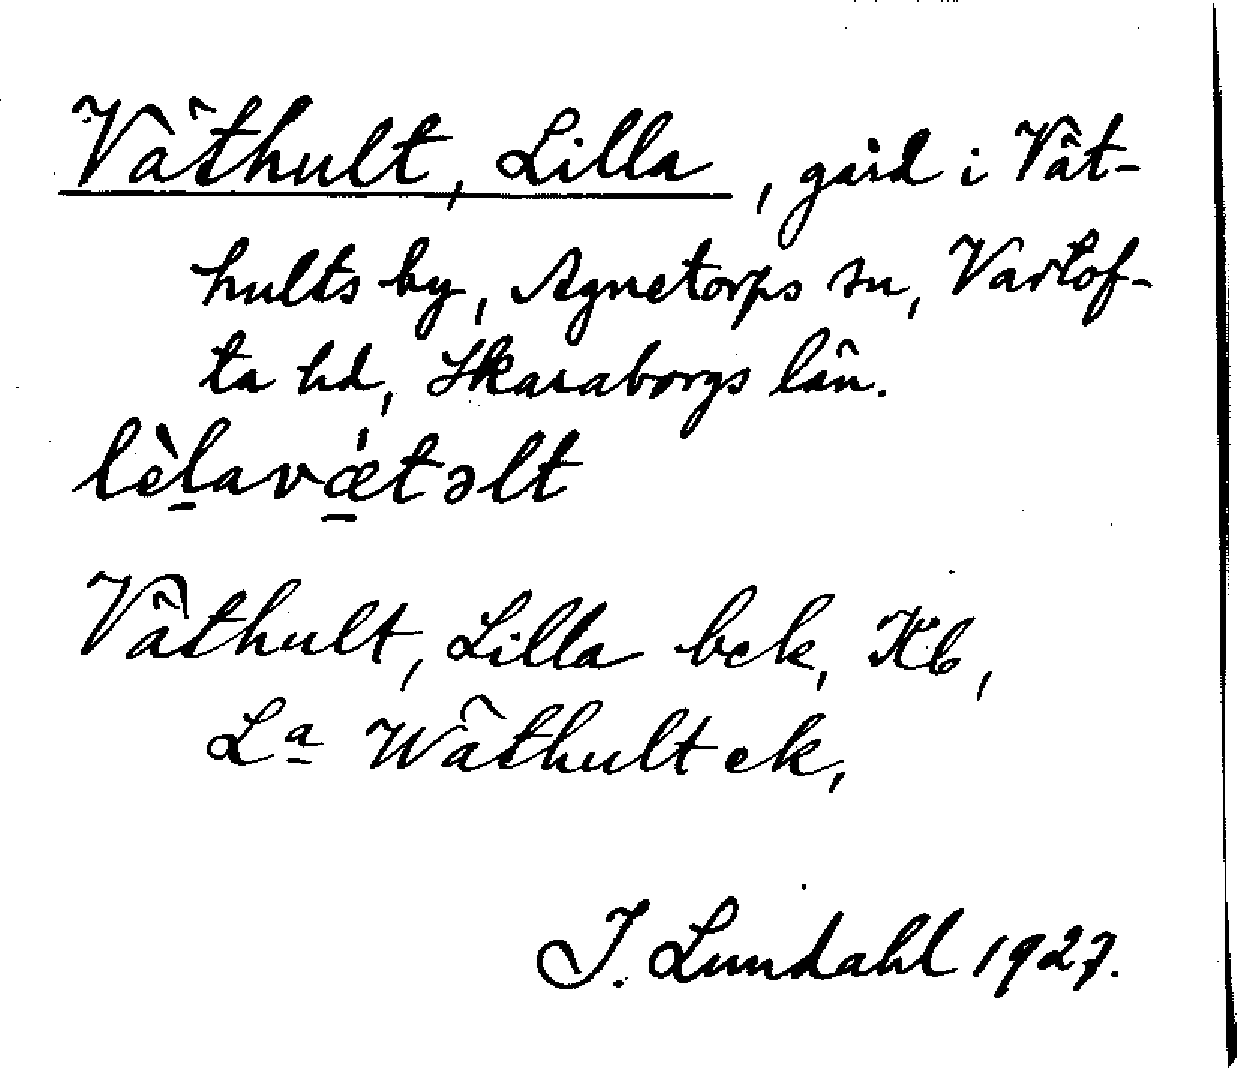 Väthult, Lilla, gård i Vät-
hults by, Agnetorps sn, Vartof-
ta hd, Skaraborgs län.
lèlavǽtəlt
Väthult, Lilla bek, Kb,
Lª Wäthult ek,
J. Lundahl 1927.